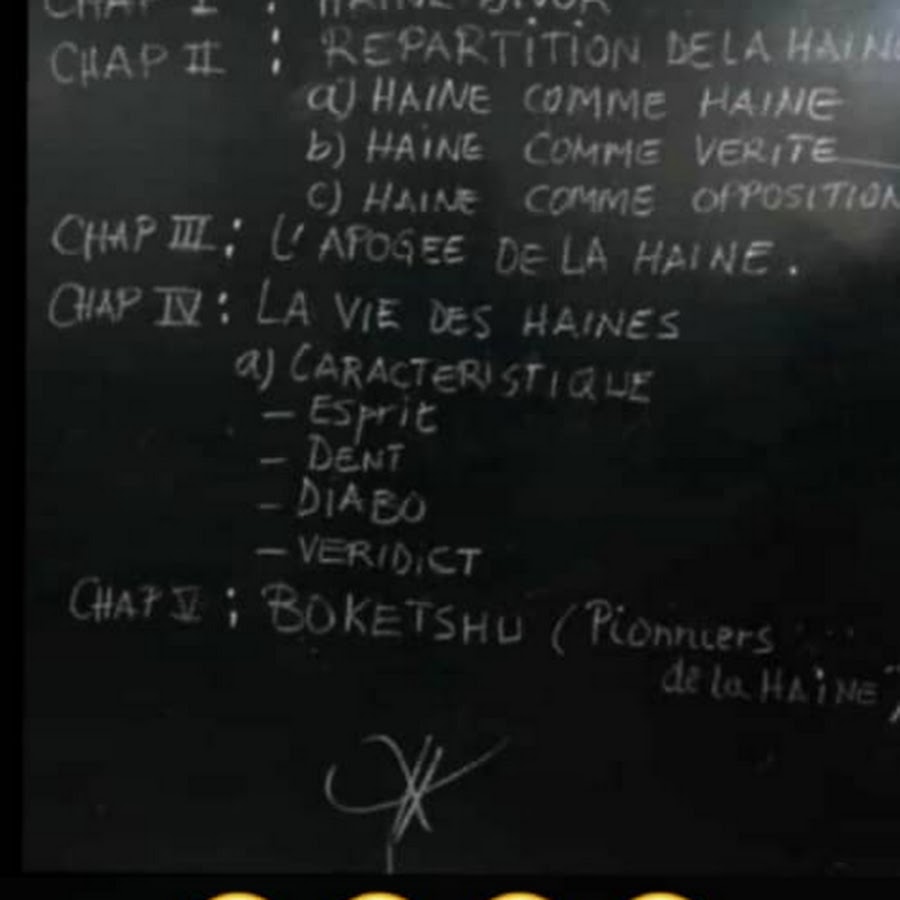 CHAP I : HAINE
CHAP II : REPARTITION DE LA HAINE
a) HAINE COMME HAINE
b) HAINE COMME VERITE
c) HAINE COMME OPPOSITION
CHAP III : L'APOGEE DE LA HAINE.
CHAP IV : LA VIE DES HAINES
a) CARACTERISTIQUE
- Esprit
- DENT
- DIABO
- VERIDICT
CHAP V : BOKETSHU (Pionniers
de la HAINE)